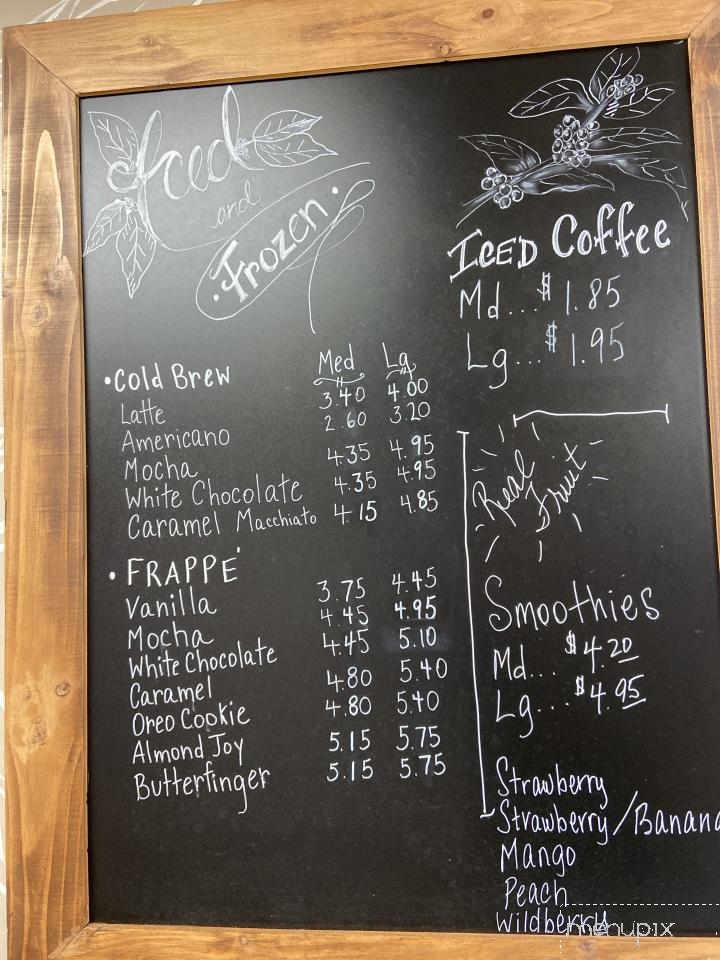 Iced
and
• Frozen •
• Cold Brew Med Lg
Latte 3.40 4.00
Americano 2.60 3.20
Mocha 4.35 4.95
White Chocolate 4.35 4.95
Caramel Macchiato 4.15 4.85
• FRAPPE'
Vanilla 3.75 4.45
Mocha 4.45 4.95
White Chocolate 4.45 5.10
Caramel 4.80 5.40
Oreo Cookie 4.80 5.40
Almond Joy 5.15 5.75
Butterfinger 5.15 5.75
ICED Coffee
Md... $1.85
Lg... $1.95
Real
Fruit
Smoothies
Md... $4.20
Lg... $4.95
Strawberry
Strawberry/Banana
Mango
Peach
Wildberry
menupix